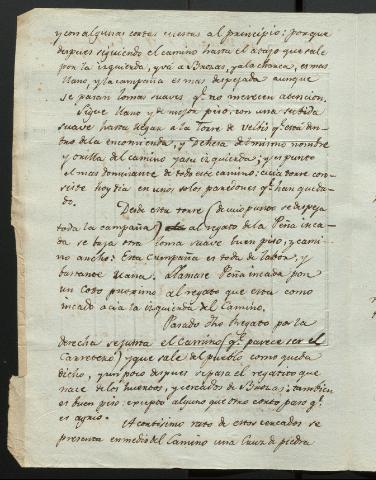 y con algunas cortas cuestas al principio: porque
despues siguiendo el camino hasta el atajo que sale
por la izquierda, y vá á Brozas, y a la charca, es mas
llano, y la campaña es mas despejada aunque
se pasan lomas suaves q.e no merecen atencion.
Sigue llano y de mejor piso, con una subida
suave hasta llegar a la Torre de Velbis q.e está den-
tro de la encomienda, y Dehesa del mismo nombre
y orilla del camino y a su izquierda; y es punto
el mas dominante de todo este camino: cuia torre con-
siste hoy dia en unos solos paredones q.e han queda-
do.
Desde esta torre (de cuio punto se despeja
toda la campaña) al regato de la Peña inca-
da se baja otra loma suave buen piso, y cami-
no ancho: Esta campaña es toda de labor, y
bastante llana. Llamase Peña incada por
un Coto proximo al regato que esta como
incado acia la izquierda del Camino.
Pasado dho Regato por la
derecha se junta el Camino (q.e parece ser el
Carretero) y que sale del pueblo como queda
dicho, y un poco despues se pasa el regatito que
nace de los huertos, y cercados de Brozas: tambien
es buen piso: excepto alguno que otro corto paso q.e
es agrio.
A cortisimo rato de estos cercados se
presenta en medio del Camino una Cruz de piedra